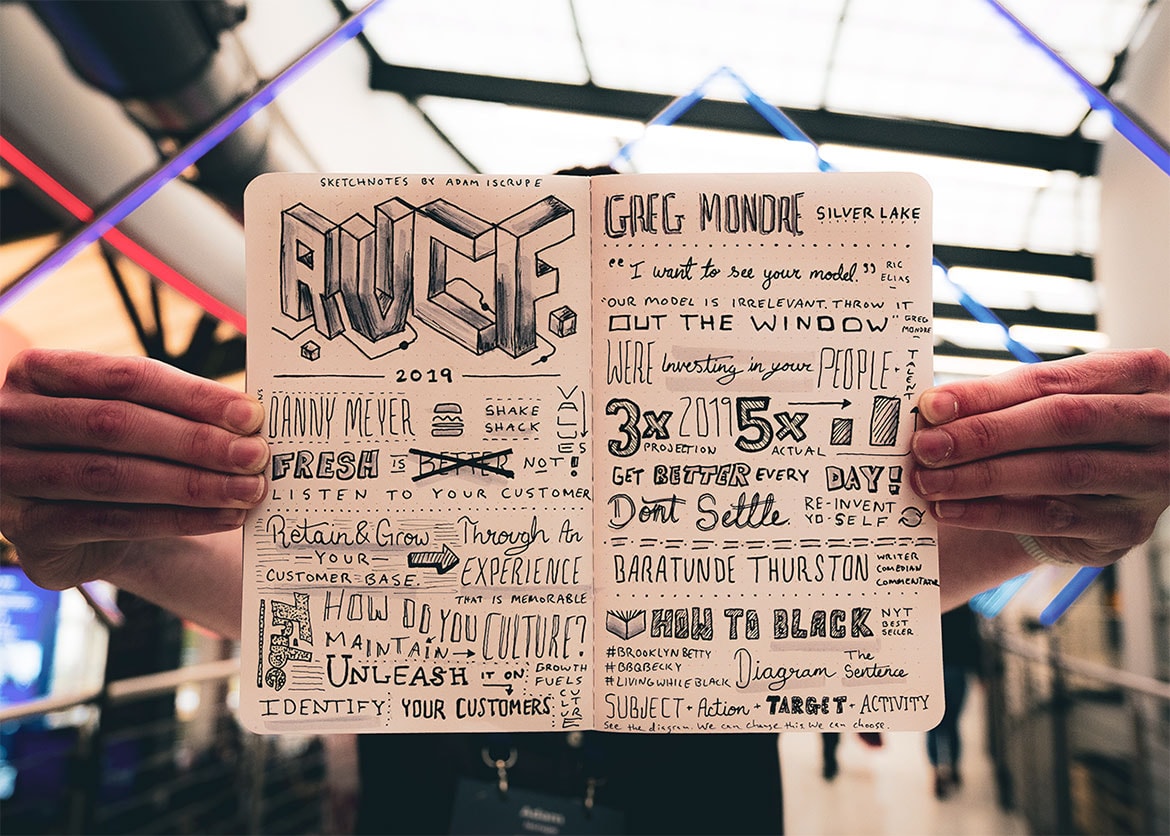 SKETCHNOTES BY ADAM ISCRUPE
AVCF.
2019
DANNY MEYER SHAKE SHACK
VALUES
FRESH IS BETTER NOT!
LISTEN TO YOUR CUSTOMER
Retain & Grow YOUR CUSTOMER BASE.
Through An EXPERIENCE
THAT IS MEMORABLE
HOW DO YOU
MAINTAIN CULTURE?
UNLEASH IT ON
GROWTH FUELS CULTURE
IDENTIFY YOUR CUSTOMERS
GREG MONDRE SILVER LAKE
"I want to see your model." RIC ELIAS
"OUR MODEL IS IRRELEVANT. THROW IT
OUT THE WINDOW" GREG MONDRE
WERE Investing in your PEOPLE + TALENT
3x 2019 5x
PROJECTION ACTUAL
GET BETTER EVERY DAY!
Dont Settle. RE-INVENT YO-SELF
BARATUNDE THURSTON WRITER COMEDIAN COMMENTATOR
HOW TO BLACK NYT BEST SELLER
#BROOKLYNBETTY
#BBQBECKY
#LIVINGWHILEBLACK
Diagram The Sentence
SUBJECT + Action + TARGET + ACTIVITY
See the diagram. We can change this. We can choose.
Adam